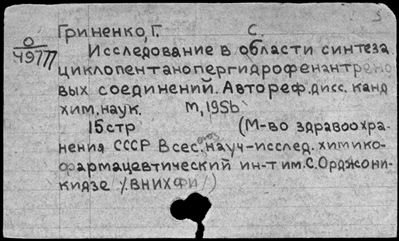 Гриненко, Г. С.
О
49777
Исследование в области синтеза
циклопентанопергидрофенантрено
вых соединений. Автореф. дисс. канд
хим. наук. М, 1956
15 стр (М-во здравоохра-
нения СССР Всес. науч-исслед. химико-
фармацевтический ин-т им. С. Орджони-
кидзе /ВНИХФИ/)